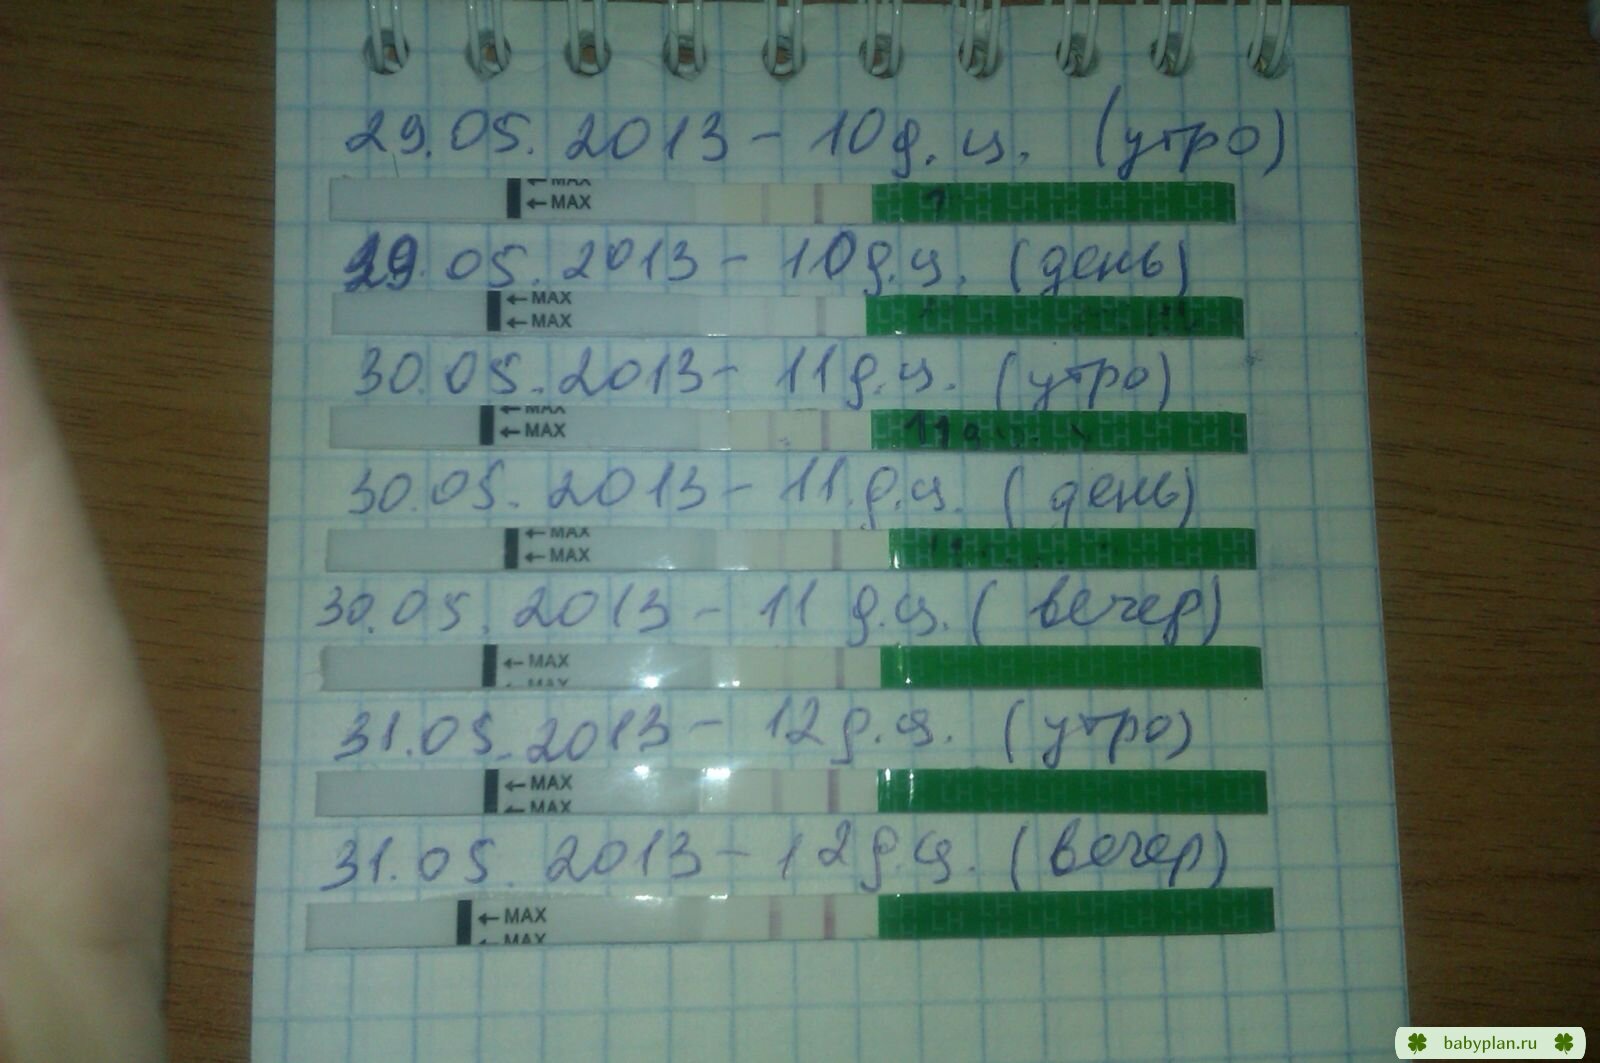 29.05.2013 - 10 д.ц. (утро)
← MAX
← MAX
29.05.2013 - 10 д.ц. (день)
← MAX
← MAX
30.05.2013 - 11 д.ц. (утро)
← MAX
← MAX
11 д
30.05.2013 - 11 д.ц. (день)
← MAX
← MAX
30.05.2013 - 11 д.ц. (вечер)
← MAX
← MAX
31.05.2013 - 12 д.ц. (утро)
← MAX
← MAX
31.05.2013 - 12 д.ц. (вечер)
← MAX
← MAX
babyplan.ru